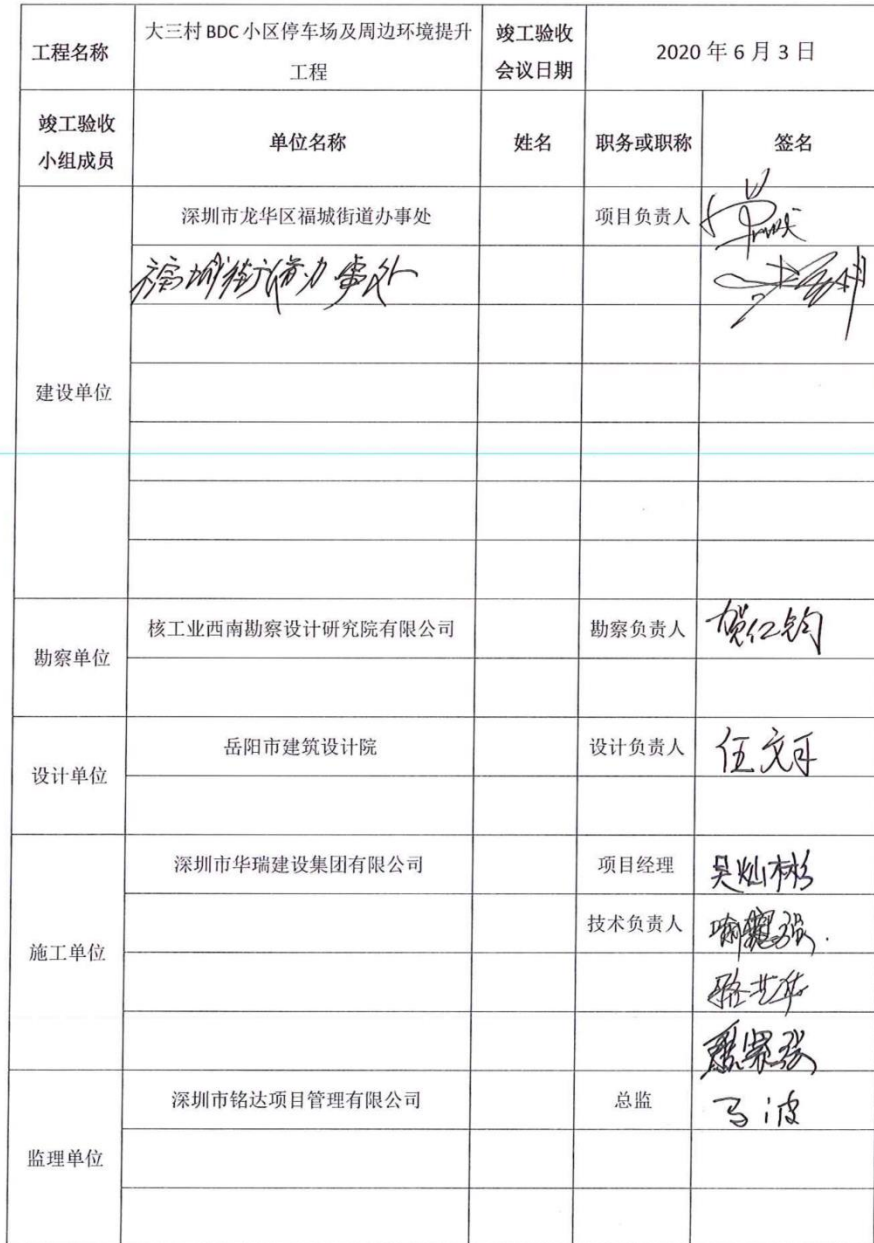 工程名称
大三村 BDC 小区停车场及周边环境提升
工程
竣工验收
会议日期
2020 年 6 月 3 日
竣工验收
小组成员
单位名称
姓名
职务或职称
签名
建设单位
深圳市龙华区福城街道办事处
项目负责人
福城街道办事处
勘察单位
核工业西南勘察设计研究院有限公司
勘察负责人
贺仁钧
设计单位
岳阳市建筑设计院
设计负责人
伍文
施工单位
深圳市华瑞建设集团有限公司
项目经理
吴灿彬
技术负责人
监理单位
深圳市铭达项目管理有限公司
总监
马波